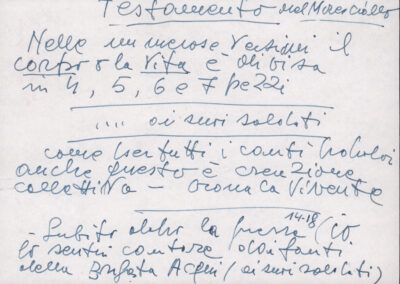 Testamento del Maresciallo
Nelle numerose versioni il
corpo o la vita è divisa
in 4, 5, 6 e 7 pezzi
.... ai suoi soldati
come per tutti i canti popolari
anche questo è creazione
collettiva - cronaca vivente
- Subito dopo la guerra 14-18 (io
lo sentii cantare da fanti
della Brigata Acqui (ai suoi soldati)